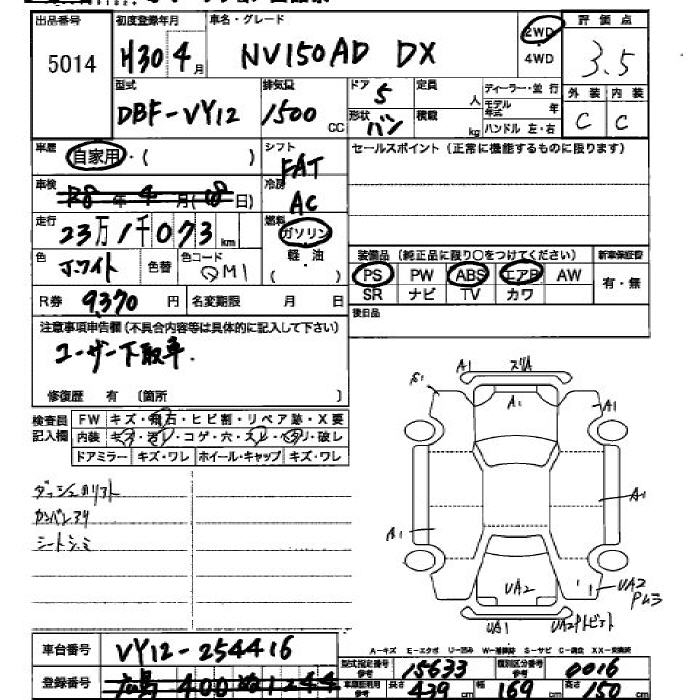 出品番号 5014
初度登録年月 H30年 4月
車名・グレード NV150AD DX
2WD 4WD
評価点 3.5
外装 内装
C C
型式 DBF-VY12
排気量 1500 CC
ドア 5
形状 バン
定員 人
積載 kg
ディーラー・並行
モデル年式 年
ハンドル 左・右
車歴 自家用・( )
シフト FAT
セールスポイント(正常に機能するものに限ります)
車検 年 4月( 日)
冷房 AC
走行 23万1千073km
燃料 ガソリン
軽・油
( )
色 ホワイト
色替
色コード QM1
装備品(純正品に限り○をつけてください)
新車保証書
有・無
PS PW ABS エアB AW
SR ナビ TV カワ
R券 9370円
名変期限 月 日
後日品
注意事項申告欄(不具合内容等は具体的に記入して下さい)
ユーザー下取車.
修復歴 有 〔箇所 〕
検査員記入欄
FW キズ・飛石・ヒビ割・リペア跡・X要
内装 キズ・汚レ・コゲ・穴・スレ・ヘタリ・破レ
ドアミラー キズ・ワレ ホイール・キャップ キズ・ワレ
A1 スリA
A1
A1
A1
A1
UA2
UA2
UA1
車台番号 VY12-254416
A-キズ E-エクボ U-凹み W-補修跡 S-サビ C-腐食 XX-交換済
型式指定番号 15633
類別区分番号 0016
登録番号 広島 400 1244
長さ 439cm 幅 169cm 高さ 150cm